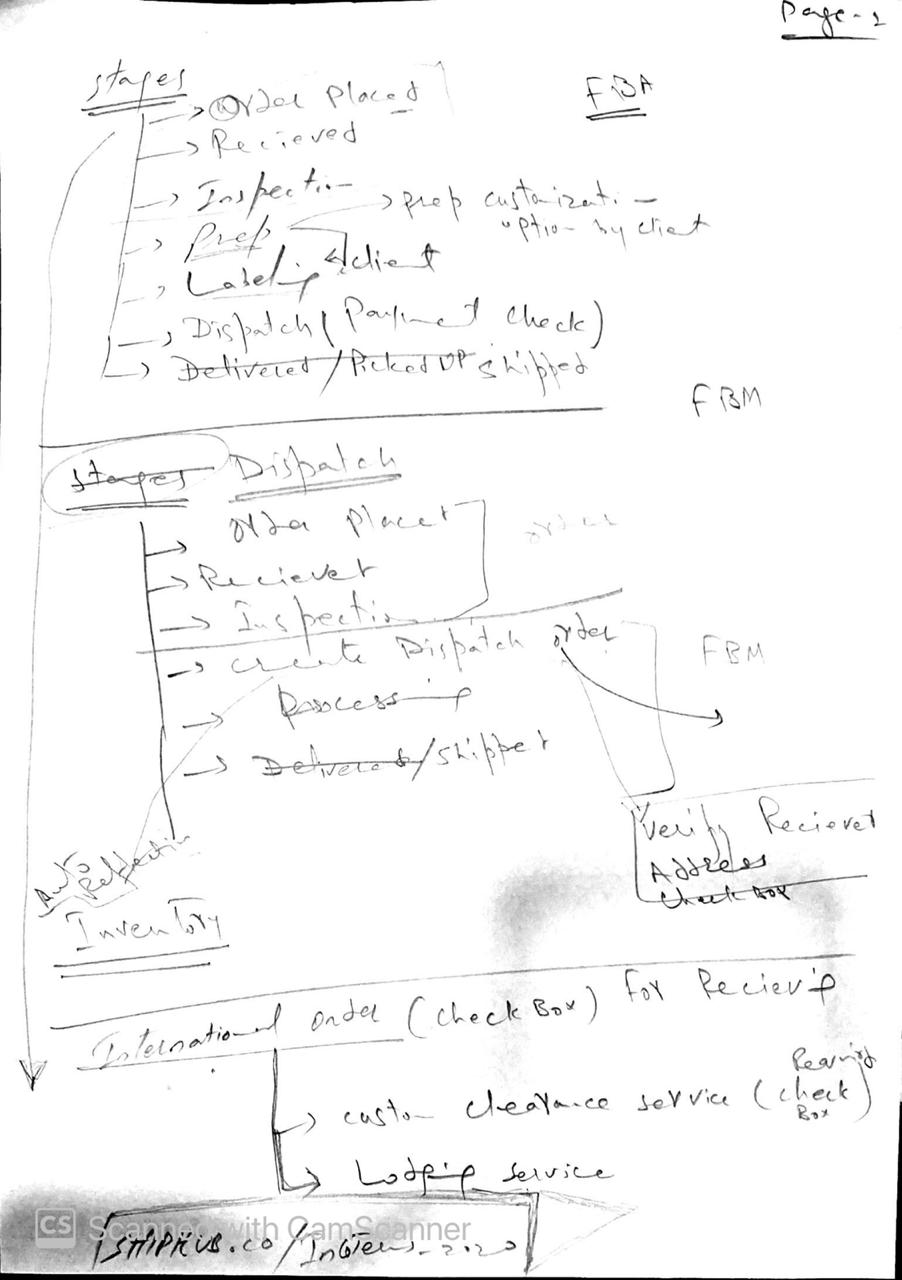 Page-1
stages
FBA
Order Placed
Recieved
Inspection
prep customization
option by client
Prep
client
Labeling
Dispatch (Payment check)
Delivered/Picked UP shipped
FBM
stages Dispatch
order placet
order
Recievet
Inspection
create Dispatch order
FBM
Processing
Delivered/shippet
Verify Recievet
Address
check Box
Auto
Inventory
International order (check Box) For
custom clearance service (
check
Box)
service
SHIPHUB.co/
CS Scanned with CamScanner